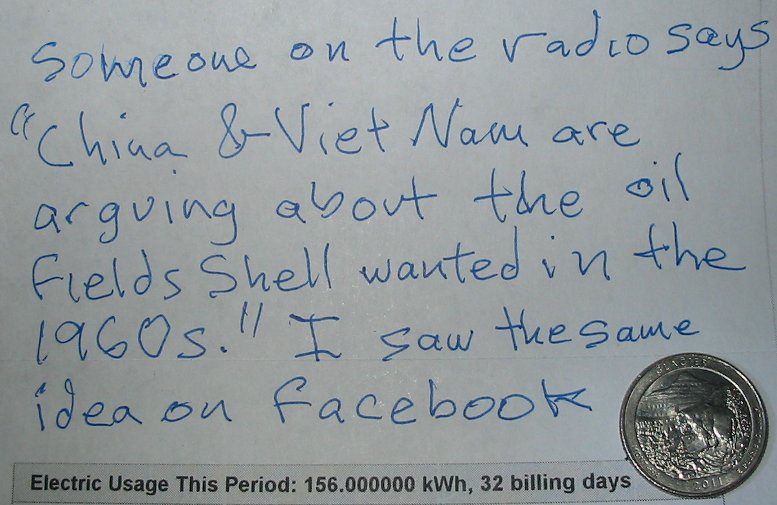 Someone on the radio says
"China & Viet Nam are
arguing about the oil
fields Shell wanted in the
1960s." I saw the same
idea on facebook
GLACIER
2011
Electric Usage This Period: 156.000000 kWh, 32 billing days